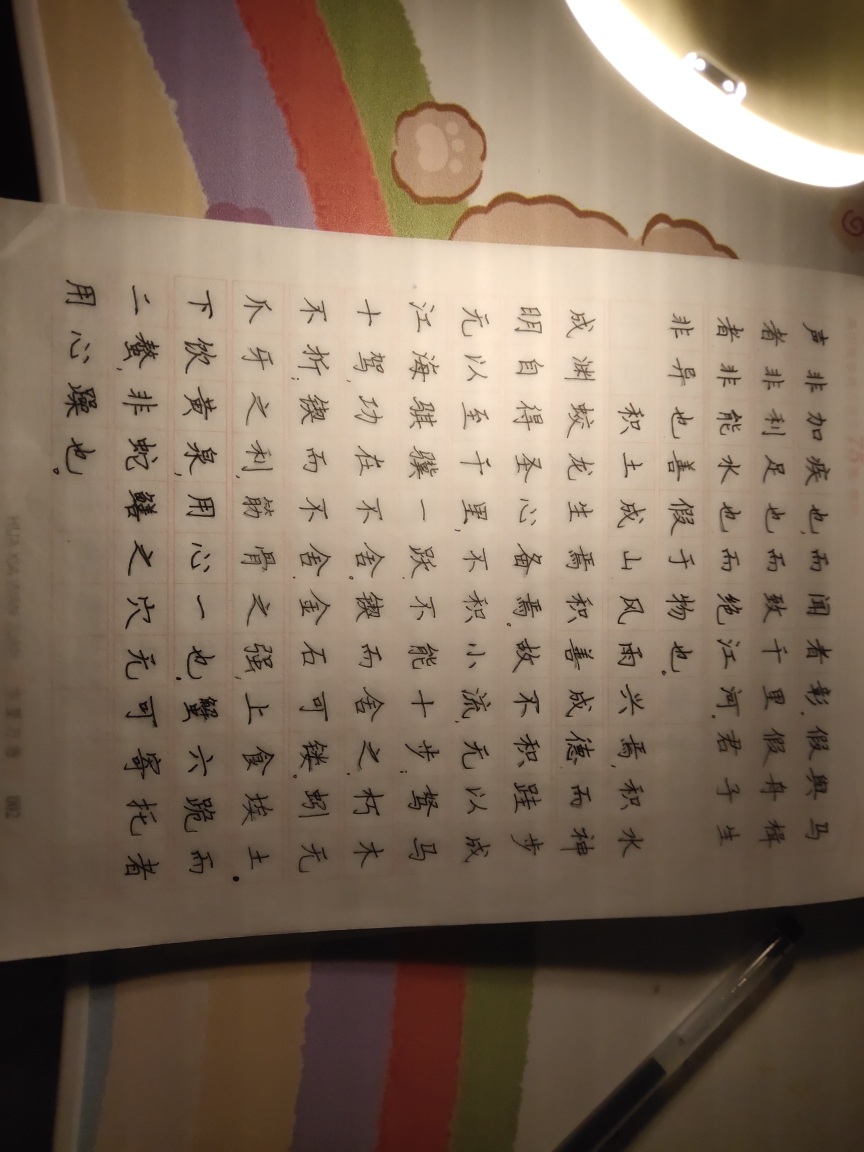 声非加疾也,而闻者彰.假舆马
者非利足也而致千里假舟楫
者非能水也而绝江河.君子生
非异也善假于物也.
积土成山风雨兴焉,积水
成渊蛟龙生焉积善成德.而神
明自得圣心备焉.故不积跬步
无以至千里,不积小流,无以成
江海骐骥一跃.不能十步;驽马
十驾,功在不舍。锲而舍之.朽木
不折;锲而不舍.金石可镂。蚓无
爪牙之利,筋骨之强,上食埃土.
下饮黄泉,用心一也.蟹六跪而
二螯,非蛇鳝之穴无可寄托者
用心躁也。
华夏万卷 002